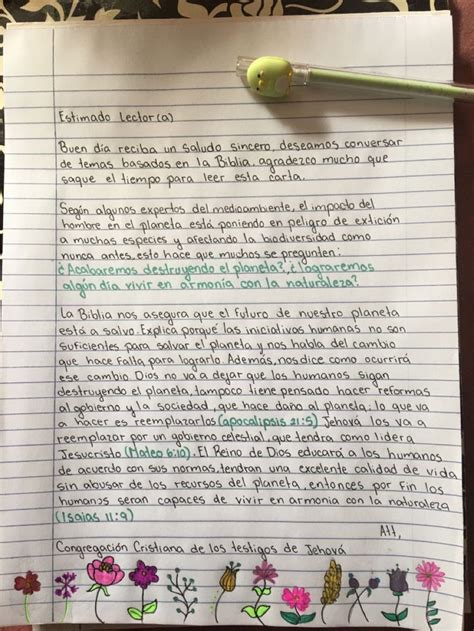 Estimado Lector(a)
Buen día reciba un saludo sincero, deseamos conversar
de temas basados en la Biblia, agradezco mucho que
saque el tiempo para leer esta carta.
Según algunos expertos del medioambiente, el impacto del
hombre en el planeta está poniendo en peligro de extición
a muchas especies y afectando la biodiversidad como
nunca antes, esto hace que muchos se pregunten:
¿Acabaremos destruyendo el planeta?, ¿lograremos
algún día vivir en armonía con la naturaleza?
La Biblia nos asegura que el futuro de nuestro planeta
está a salvo. Explica porqué las iniciativas humanas no son
suficientes para salvar el planeta y nos habla del cambio
que hace falta para lograrlo. Además, nos dice como ocurrirá
ese cambio Dios no va a dejar que los humanos sigan
destruyendo el planeta, tampoco tiene pensado hacer reformas
al gobierno y la sociedad, que hace daño al planeta; lo que va
a hacer es reemplazarlos (apocalipsis 21:5) Jehová los va a
reemplazar por un gobierno celestial, que tendra como lidera
Jesucristo (Mateo 6:10). El Reino de Dios educará a los humanos
de acuerdo con sus normas, tendran una excelente calidad de vida
sin abusar de los recursos del planeta, entonces por fin los
humanos seran capaces de vivir en armonia con la naturaleza
(Isaias 11:9)
Att,
Congregación Cristiana de los testigos de Jehová